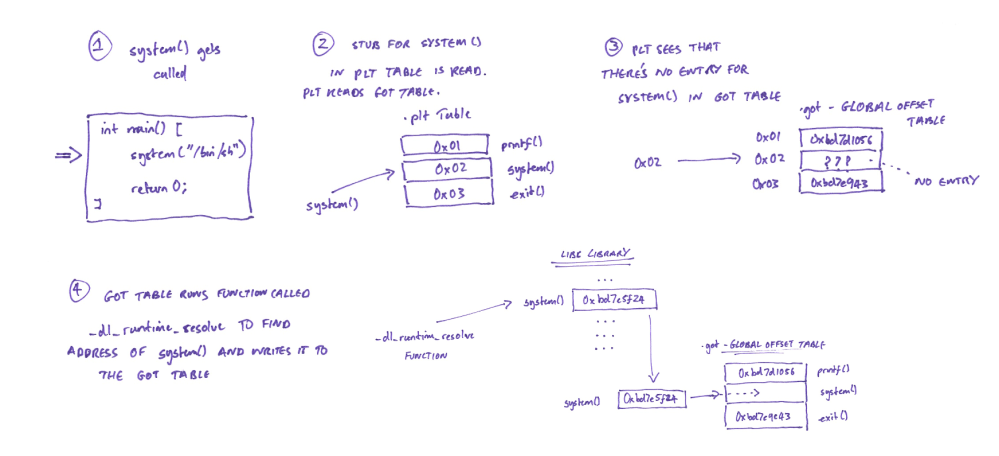 1 system() gets
called
int main() [
system("/bin/sh")
return 0;
]
2 STUB FOR SYSTEM()
IN PLT TABLE IS READ.
PLT READS GOT TABLE.
.plt Table
0x01 printf()
0x02 system()
0x03 exit()
system()
3 PLT SEES THAT
THERE'S NO ENTRY FOR
SYSTEM() IN GOT TABLE
.got - GLOBAL OFFSET
TABLE
0x01 0xbd7d1056
0x02 0x02 ???
0x03 0xbd7e9a43
NO ENTRY
4 GOT TABLE RUNS FUNCTION CALLED
_dl_runtime_resolve TO FIND
ADDRESS OF system() AND WRITES IT TO
THE GOT TABLE
_dl_runtime_resolve
FUNCTION
LIBC LIBRARY
...
system() 0xbd7e5f24
...
...
...
system() 0xbd7e5f24
.got - GLOBAL OFFSET TABLE
0xbd7d1056 printf()
----> system()
0xbd7e9e43 exit()